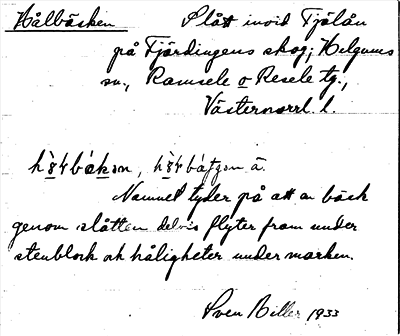 Hålbäcken Slått invid Fjölån
på Fjärdingens skog; Helgums
sn., Ramsele o Resele tg.,
Västernorrl. l.
Namnet tyder på att en bäck
genom slåtten delvis flyter fram under
stenblock och håligheter under marken.
Sven Biller 1933